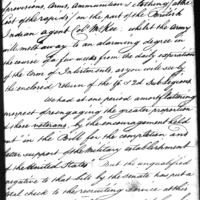 provisions, Arms, Ammunition & clothing, at the
foot of the rapids) on the part of the British
Indian agent Col McKee. whilst the Army
will melt away to an alarming degree in
the course of a few weeks from the daily expiration
of the term of Inlistments, as you will see by
the enclosed Return of the 1st & 2d Sub legions.
We had at one period, a most flattering
prospect of reengaging the greater proportion
of these veterans, by the encouragement held
out in the Bill for the completion and
better support of the Military establishment
of the United States" But the unqualified
negative to that bill by the Senate has put a
total check to the recruiting service at this